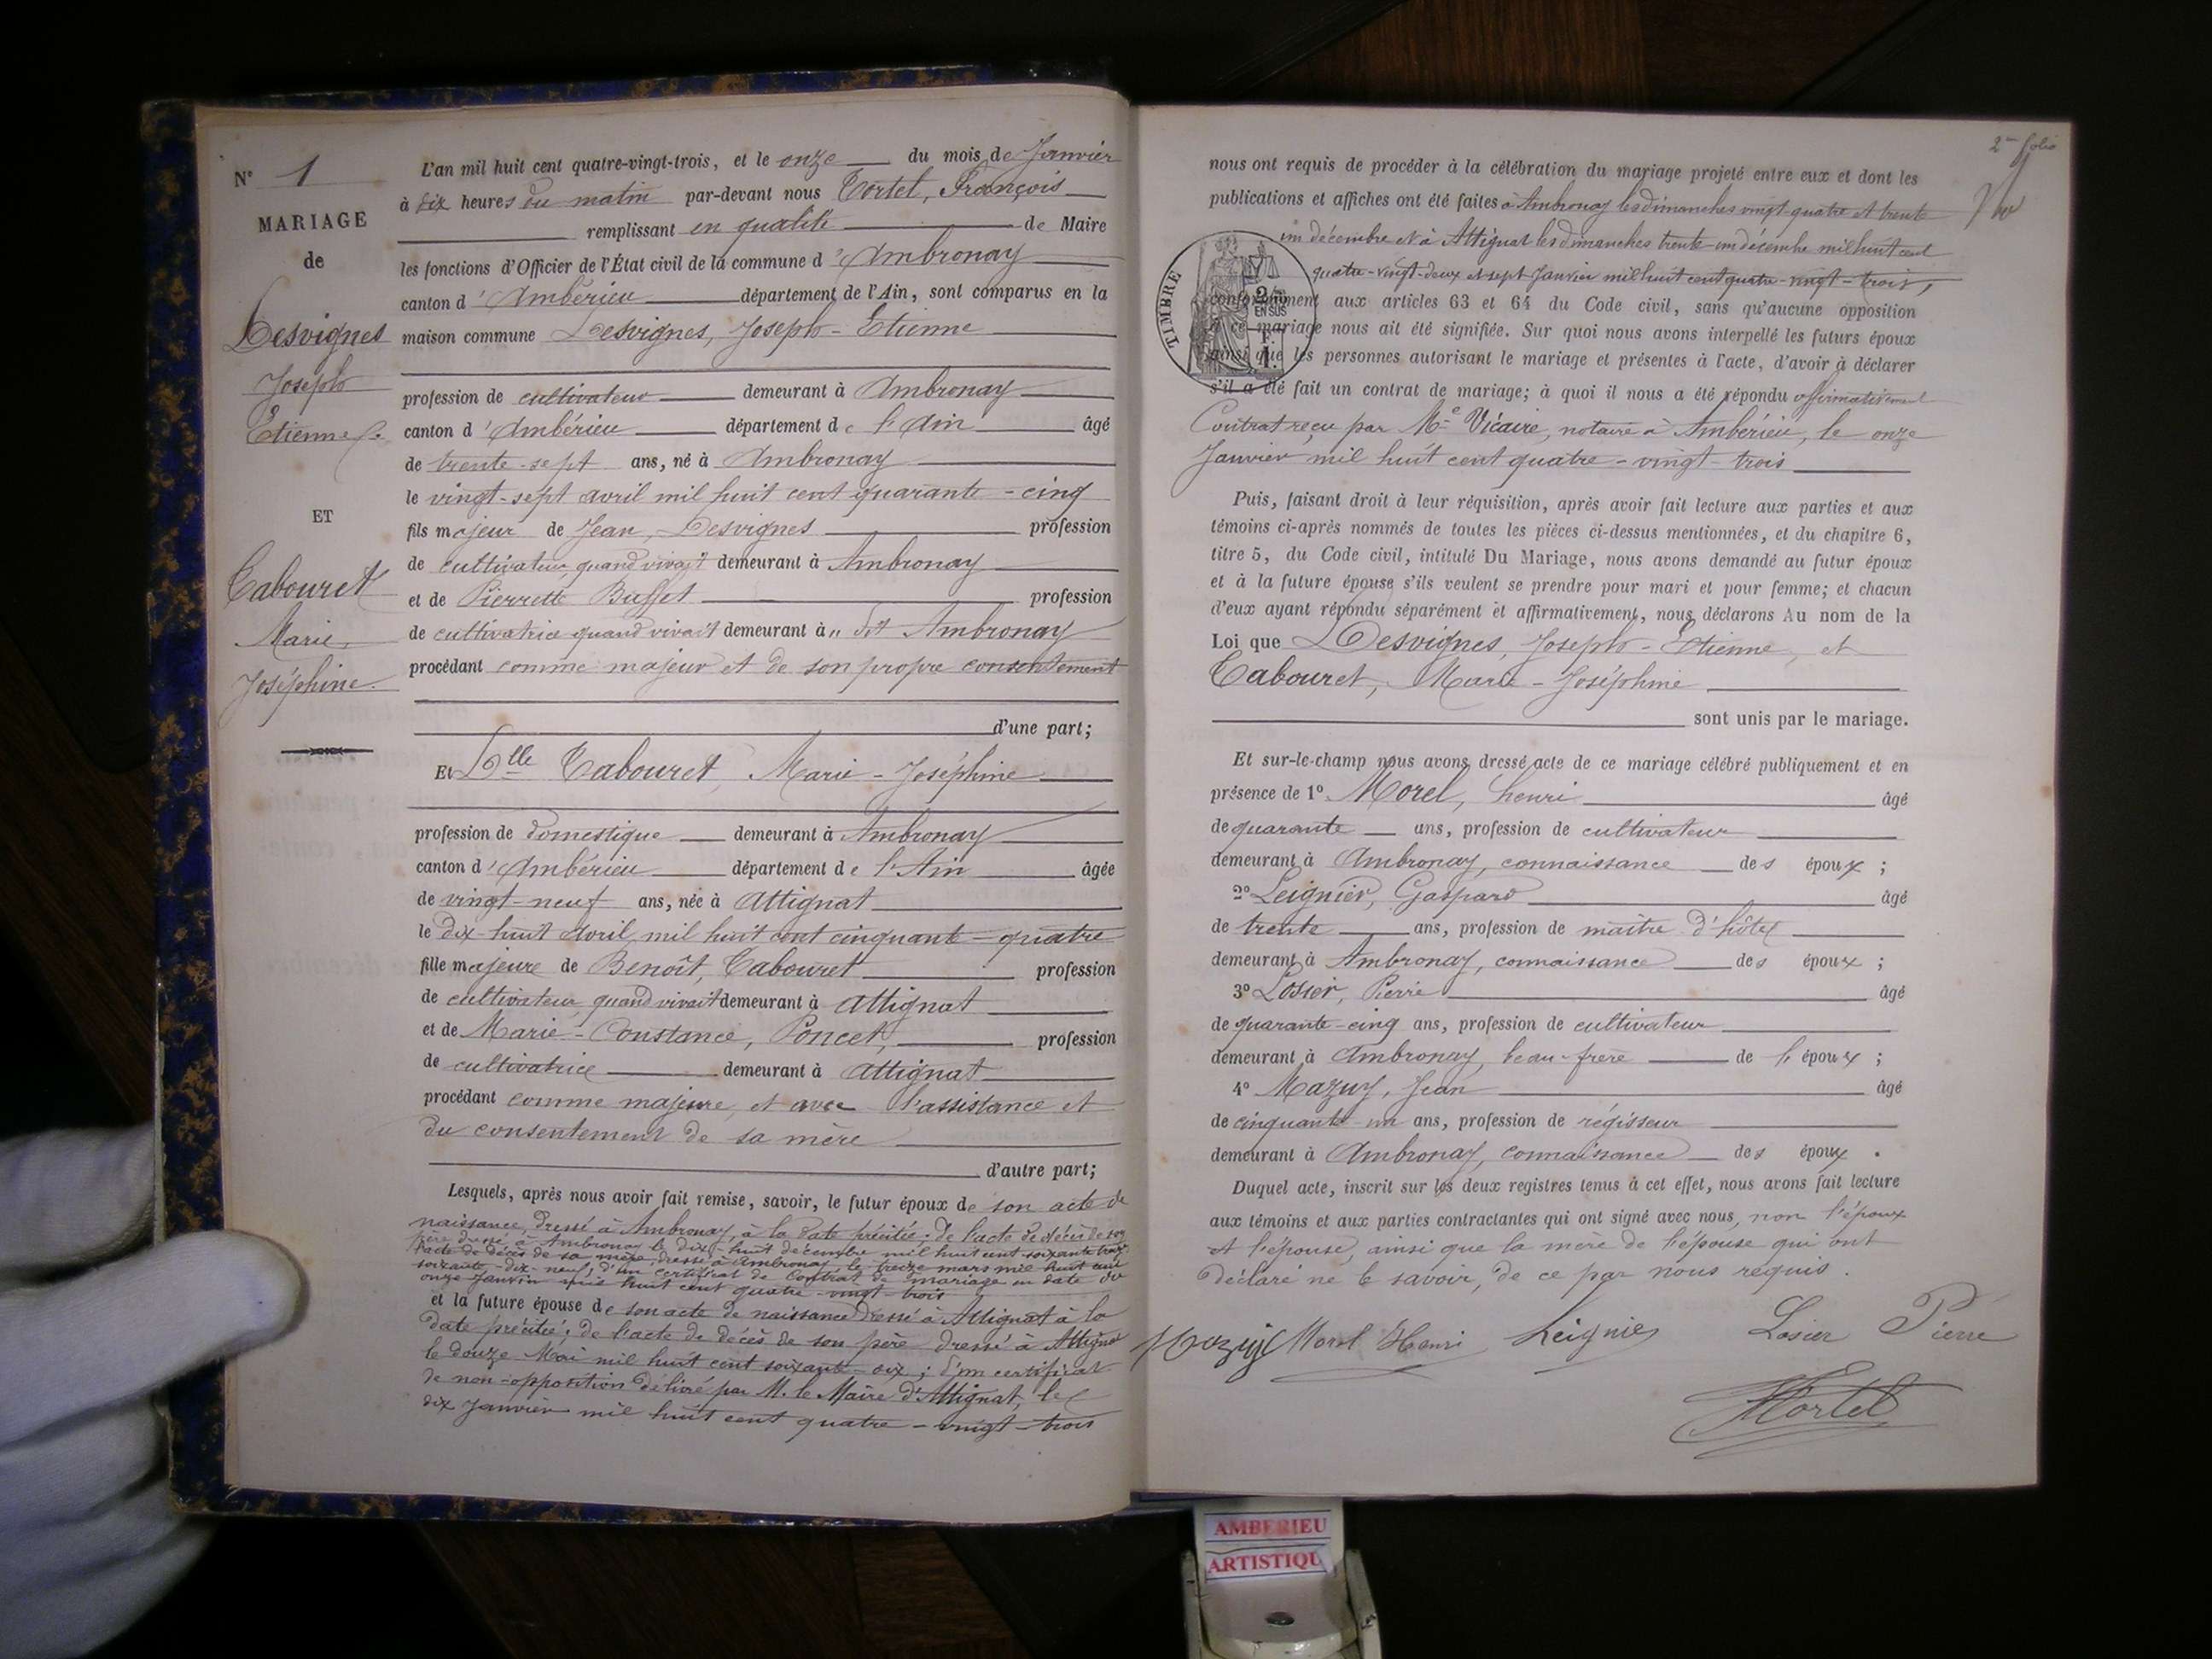 N° 1
MARIAGE
de
Desvignes
Joseph
Etienne
ET
Tabouret
Marie,
Joséphine.
L'an mil huit cent quatre-vingt-trois, et le onze du mois de Janvier
à dix heures du matin par-devant nous Tortel, François
remplissant en qualité de Maire
les fonctions d'Officier de l'État civil de la commune d'Ambronay
canton d'Ambérieu département de l'Ain, sont comparus en la
maison commune Desvignes, Joseph-Etienne
profession de cultivateur demeurant à Ambronay
canton d'Ambérieu département de l'Ain âgé
de trente-sept ans, né à Ambronay
le vingt-sept avril mil huit cent quarante-cinq
fils majeur de Jean, Desvignes profession
de cultivateur quand vivait demeurant à Ambronay
et de Pierrette Buffet profession
de cultivatrice quand vivait demeurant à Ambronay
procédant comme majeur et de son propre consentement
d'une part;
Et Dlle Tabouret, Marie-Joséphine
profession de domestique demeurant à Ambronay
canton d'Ambérieu département de l'Ain âgée
de vingt-neuf ans, née à Attignat
le dix-huit avril mil huit cent cinquante-quatre
fille majeure de Benoît, Tabouret profession
de cultivateur quand vivait demeurant à Attignat
et de Marie-Constance, Poncet, profession
de cultivatrice demeurant à Attignat
procédant comme majeure, et avec l'assistance et
du consentement de sa mère
d'autre part;
Lesquels, après nous avoir fait remise, savoir, le futur époux de son acte de
naissance, dressé à Ambronay, à la date précitée; de l'acte de décès de son
père dressé à Ambronay le dix-huit décembre mil huit cent soixante treize
l'acte de décès de sa mère, dressé à Ambronay, le treize mars mil huit cent
soixante-dix-neuf; d'un certificat de Contrat de mariage en date du
onze Janvier mil huit cent quatre-vingt-trois
et la future épouse de son acte de naissance dressé à Attignat à la
date précitée; de l'acte de décès de son père dressé à Attignat
le douze Mai mil huit cent soixante-six; d'un certificat
de non-opposition délivré par M. le Maire d'Attignat, le
dix Janvier mil huit cent quatre-vingt-trois
2me folio
nous ont requis de procéder à la célébration du mariage projeté entre eux et dont les
publications et affiches ont été faites à Ambronay les dimanches vingt-quatre et trente
un décembre et à Attignat les dimanches trente-un décembre mil huit cent
quatre-vingt-deux et sept Janvier mil huit cent quatre-vingt-trois,
conformément aux articles 63 et 64 du Code civil, sans qu'aucune opposition
à ce mariage nous ait été signifiée. Sur quoi nous avons interpellé les futurs époux
ainsi que les personnes autorisant le mariage et présentes à l'acte, d'avoir à déclarer
s'il a été fait un contrat de mariage; à quoi il nous a été répondu affirmativement
TIMBRE
2/10
EN SUS
F.
1.
Contrat reçu par Me Vicaire, notaire à Ambérieu, le onze
Janvier mil huit cent quatre-vingt-trois
Puis, faisant droit à leur réquisition, après avoir fait lecture aux parties et aux
témoins ci-après nommés de toutes les pièces ci-dessus mentionnées, et du chapitre 6,
titre 5, du Code civil, intitulé Du Mariage, nous avons demandé au futur époux
et à la future épouse s'ils veulent se prendre pour mari et pour femme; et chacun
d'eux ayant répondu séparément et affirmativement, nous déclarons Au nom de la
Loi que Desvignes, Joseph-Etienne, et
Tabouret, Marie-Joséphine
sont unis par le mariage.
Et sur-le-champ nous avons dressé acte de ce mariage célébré publiquement et en
présence de 1° Morel, henri âgé
de quarante ans, profession de cultivateur
demeurant à Ambronay, connaissance des époux;
2° Leignier, Gaspard âgé
de trente ans, profession de maître d'hôtel
demeurant à Ambronay, connaissance des époux;
3° Losier, Pierre âgé
de quarante-cinq ans, profession de cultivateur
demeurant à Ambronay, beau-frère de l'époux;
4° Mazuy, Jean âgé
de cinquante-un ans, profession de régisseur
demeurant à Ambronay, connaissance des époux.
Duquel acte, inscrit sur les deux registres tenus à cet effet, nous avons fait lecture
aux témoins et aux parties contractantes qui ont signé avec nous, non l'époux
et l'épouse, ainsi que la mère de l'épouse qui ont
déclaré ne le savoir, de ce par nous requis.
Mazuy Morel Henri Leignier Losier Pierre
Tortel
AMBERIEU
ARTISTIQU